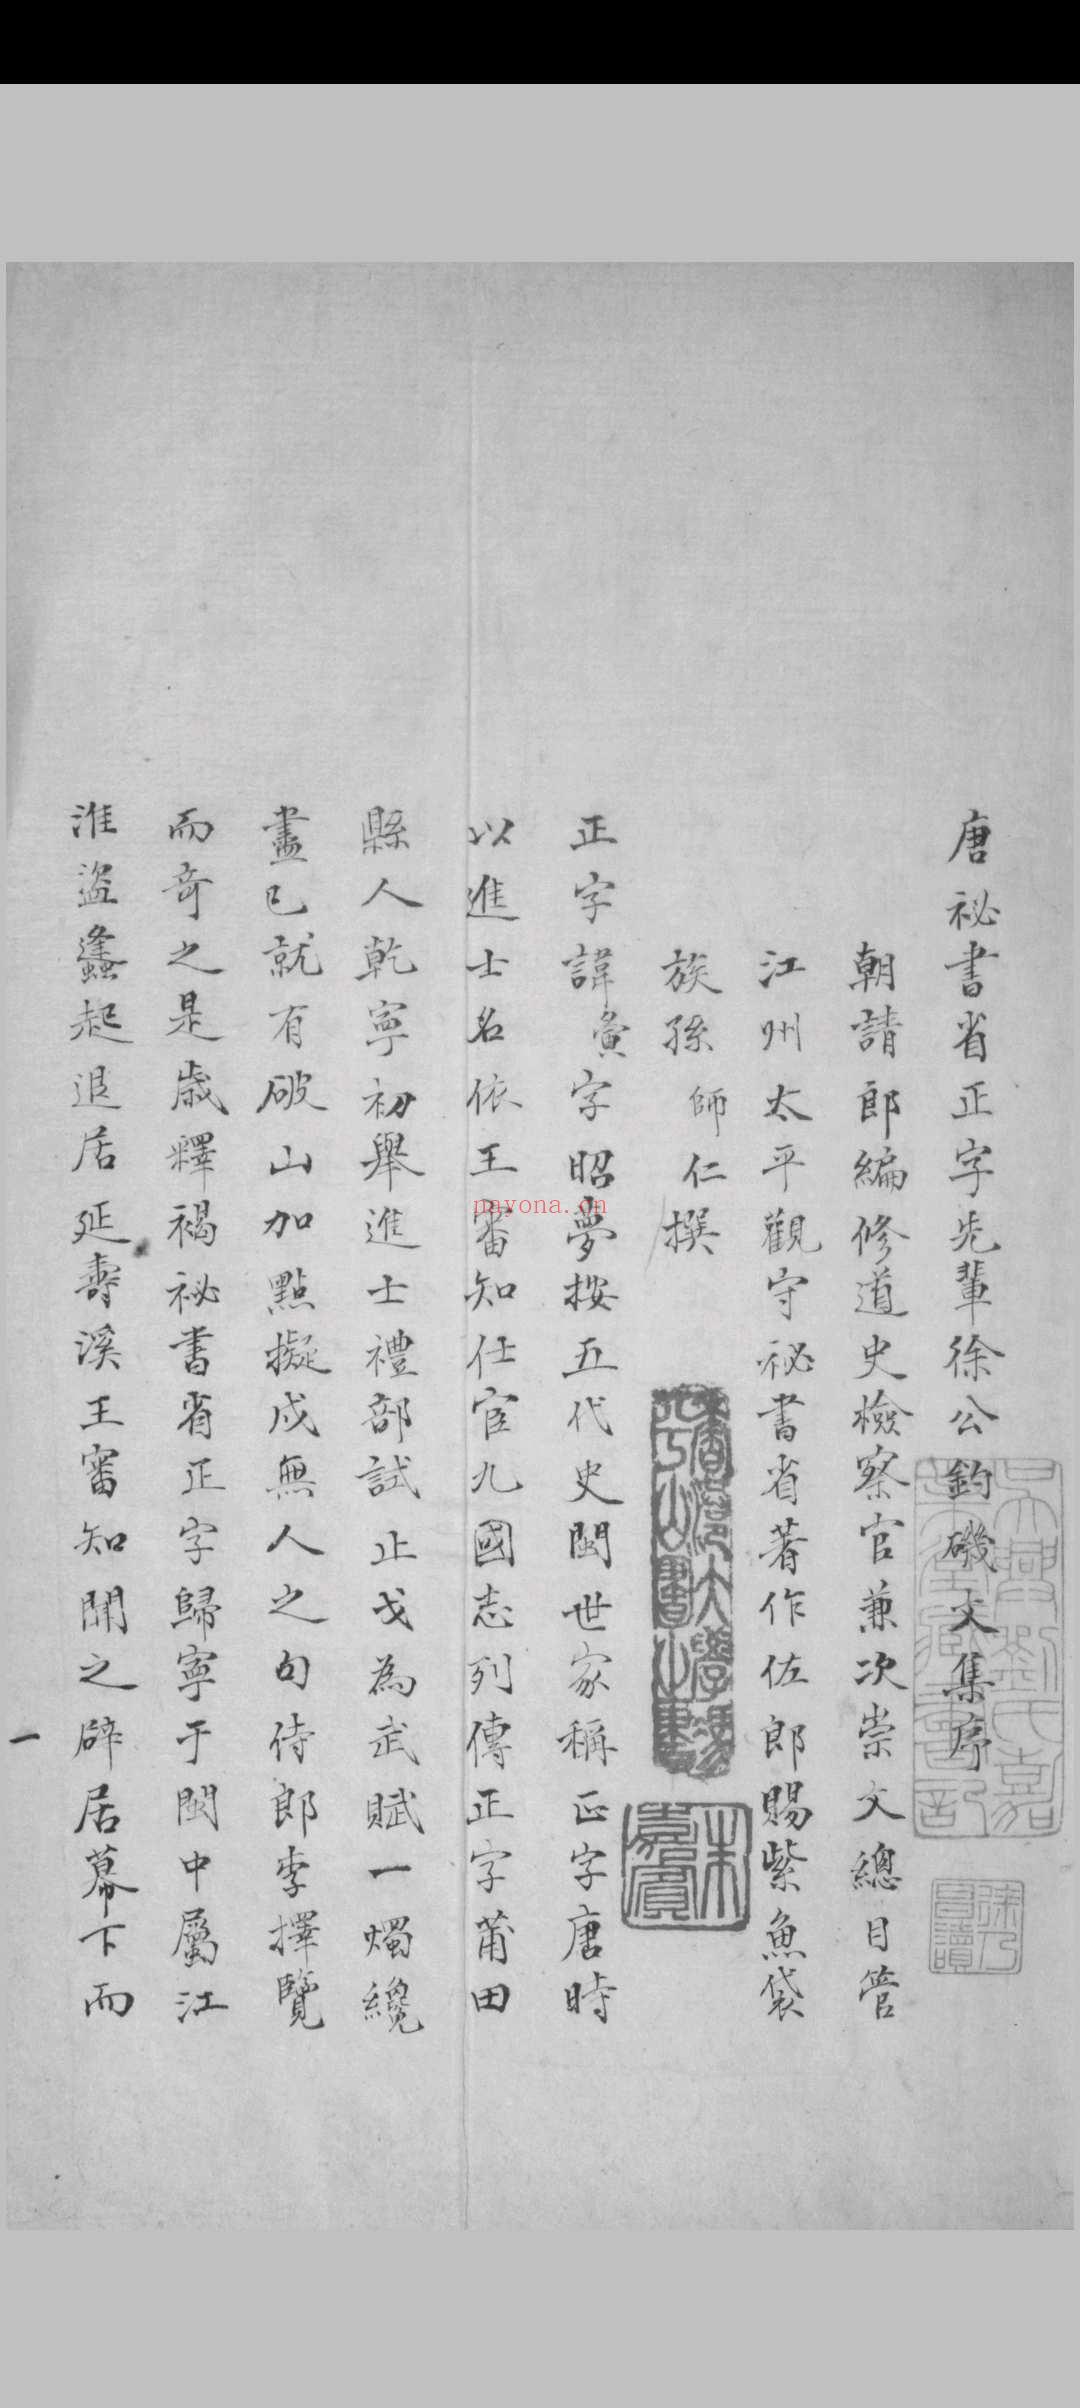 唐祕書省正字先輩徐公釣磯文集序
朝請郎編修道史檢察官兼次崇文總目管
江州太平觀守祕書省著作佐郎賜紫魚袋
族孫師仁撰
正字諱夤字昭夢按五代史閩世家稱正字唐時
以進士名依王審知仕宦九國志列傳正字莆田
縣人乾寧初舉進士禮部試止戈為武賦一燭纔
盡已就有破山加點擬戍無人之句侍郎李擇覽
而奇之是歲釋褐祕書省正字歸寧于閩中屬江
淮盜蠭起退居延壽溪王審知聞之辟居幕下而
一
吳興劉氏嘉業堂藏書記
香港大學馮平山圖書館藏書
朱嘉賓
nayona.cn